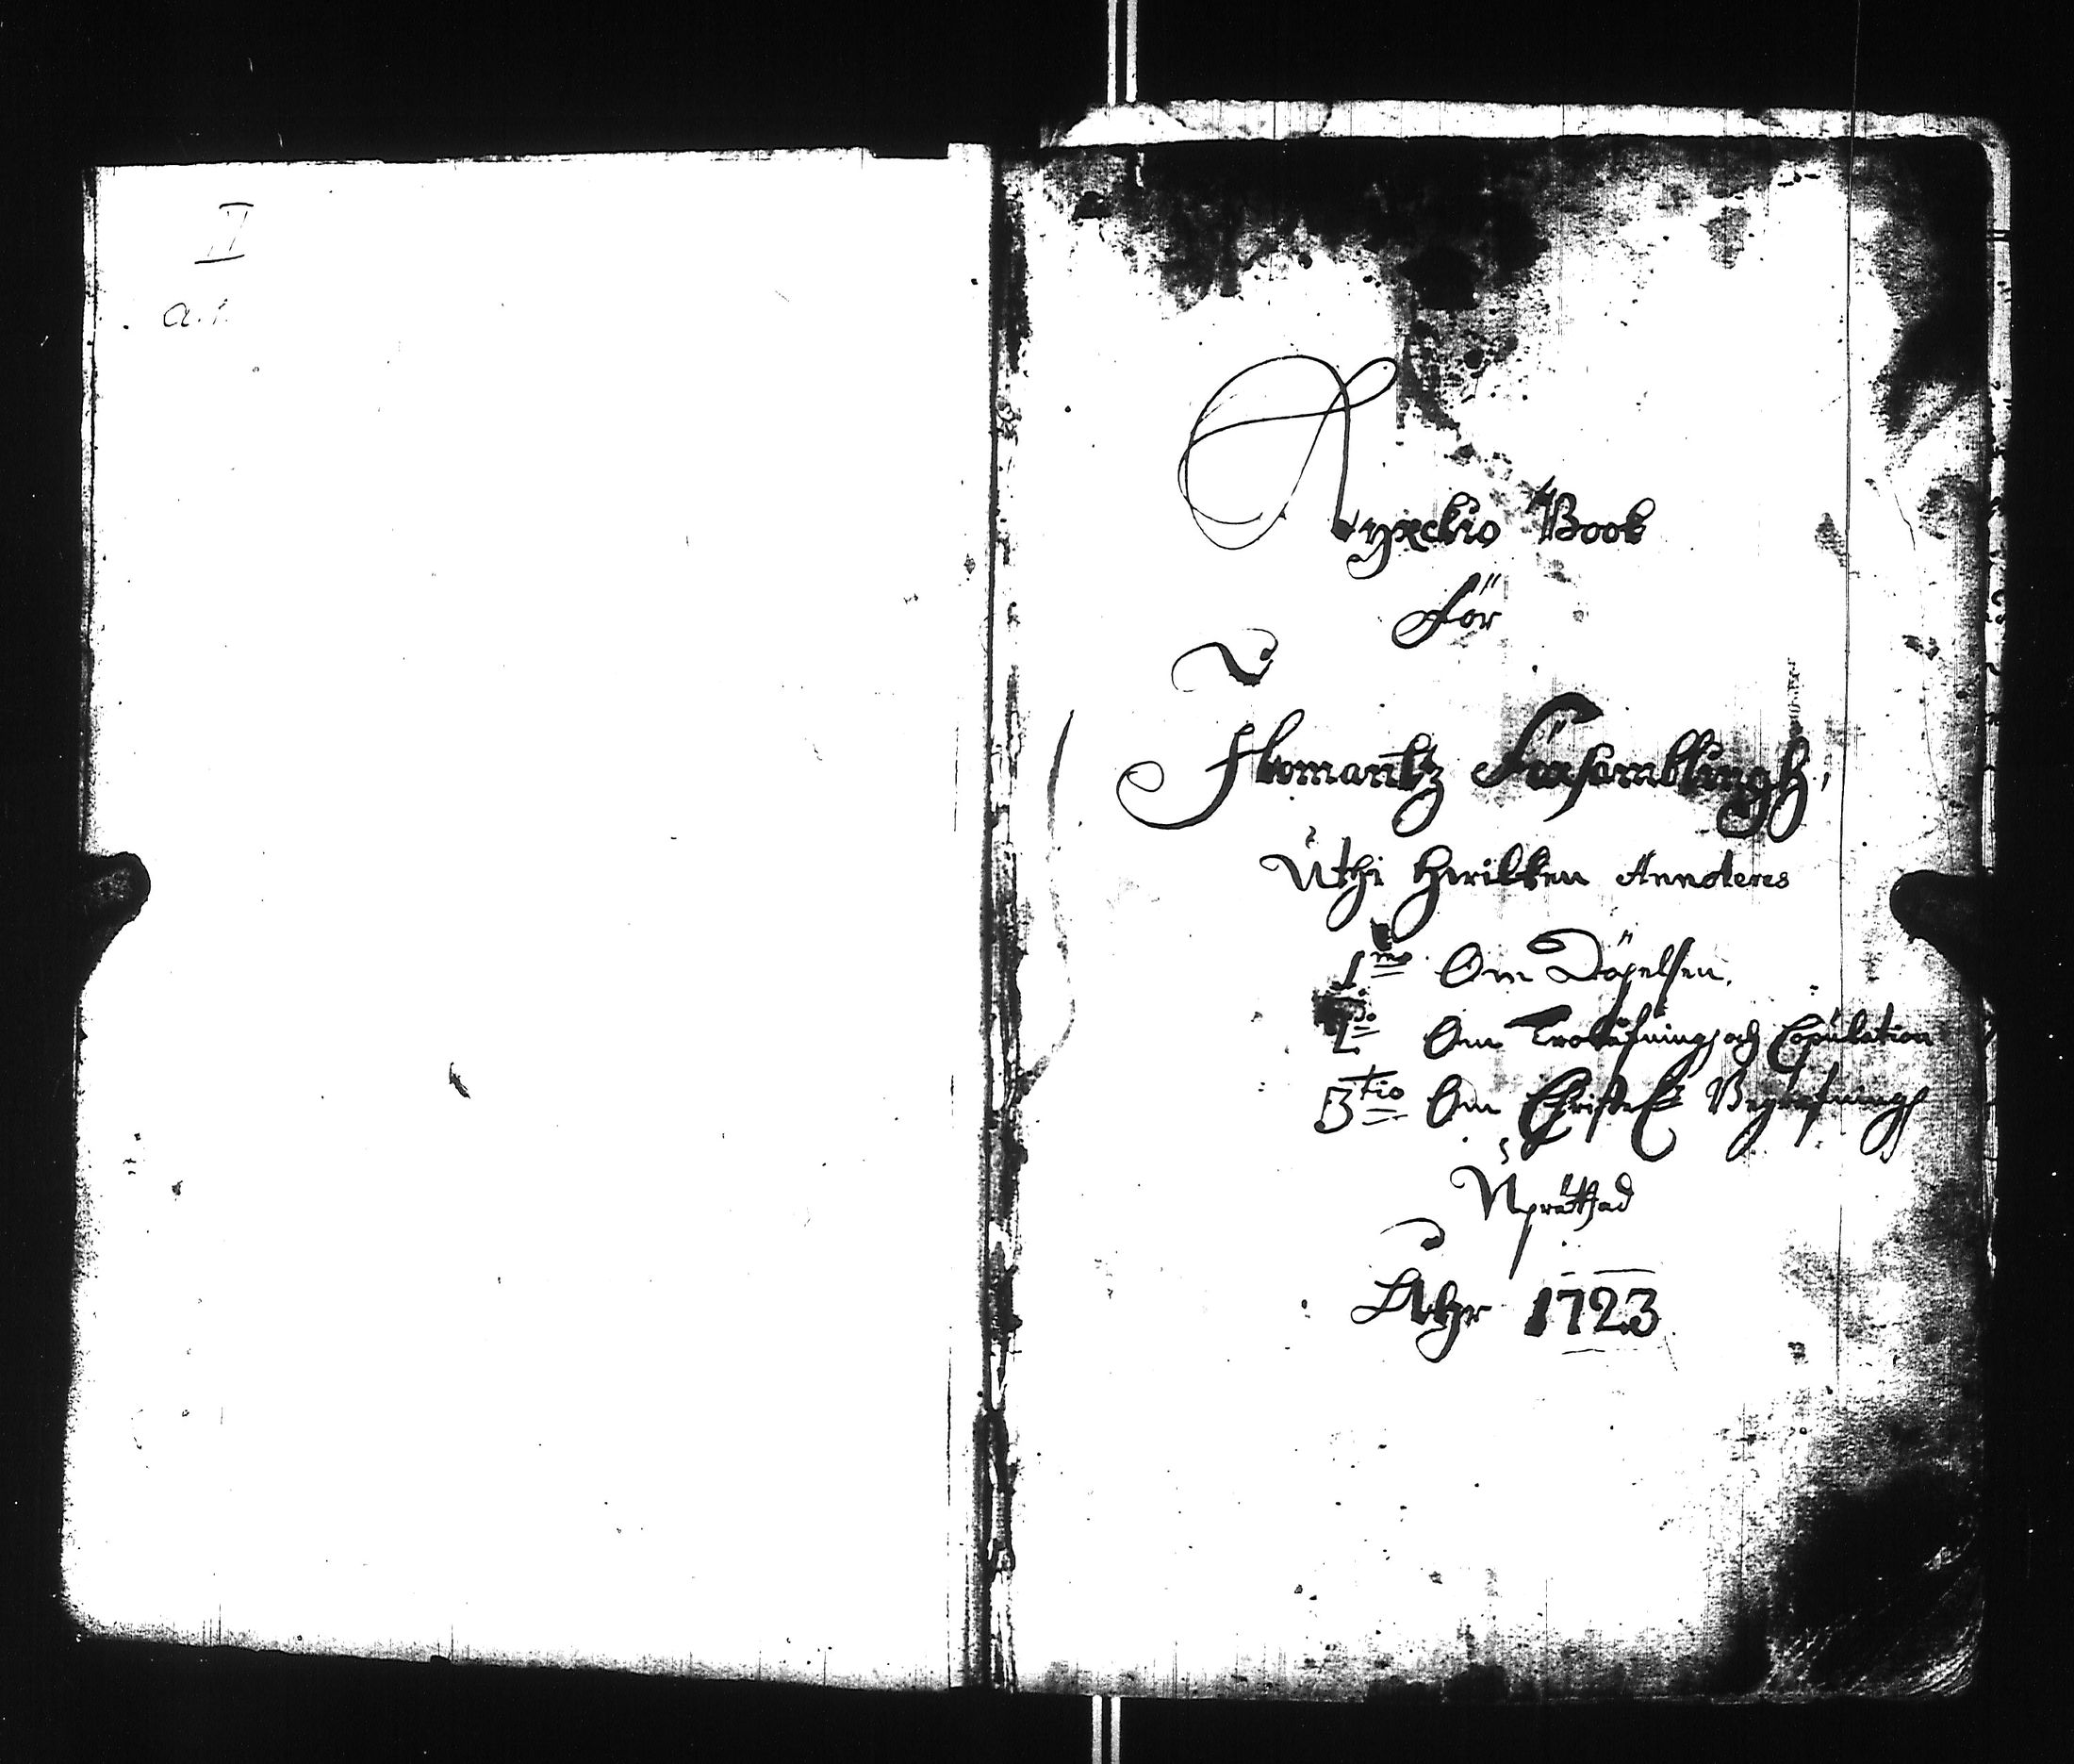 II
a. 1.
Kyrckio Book
För
Ilomantz Församblingh,
Uthi hwilken Annoteres
1mo Om Döpelsen,
2do Om Trolåfning och Copulation
3tio Om Christel. Begrafningh
Uprättad
Åhr 1723